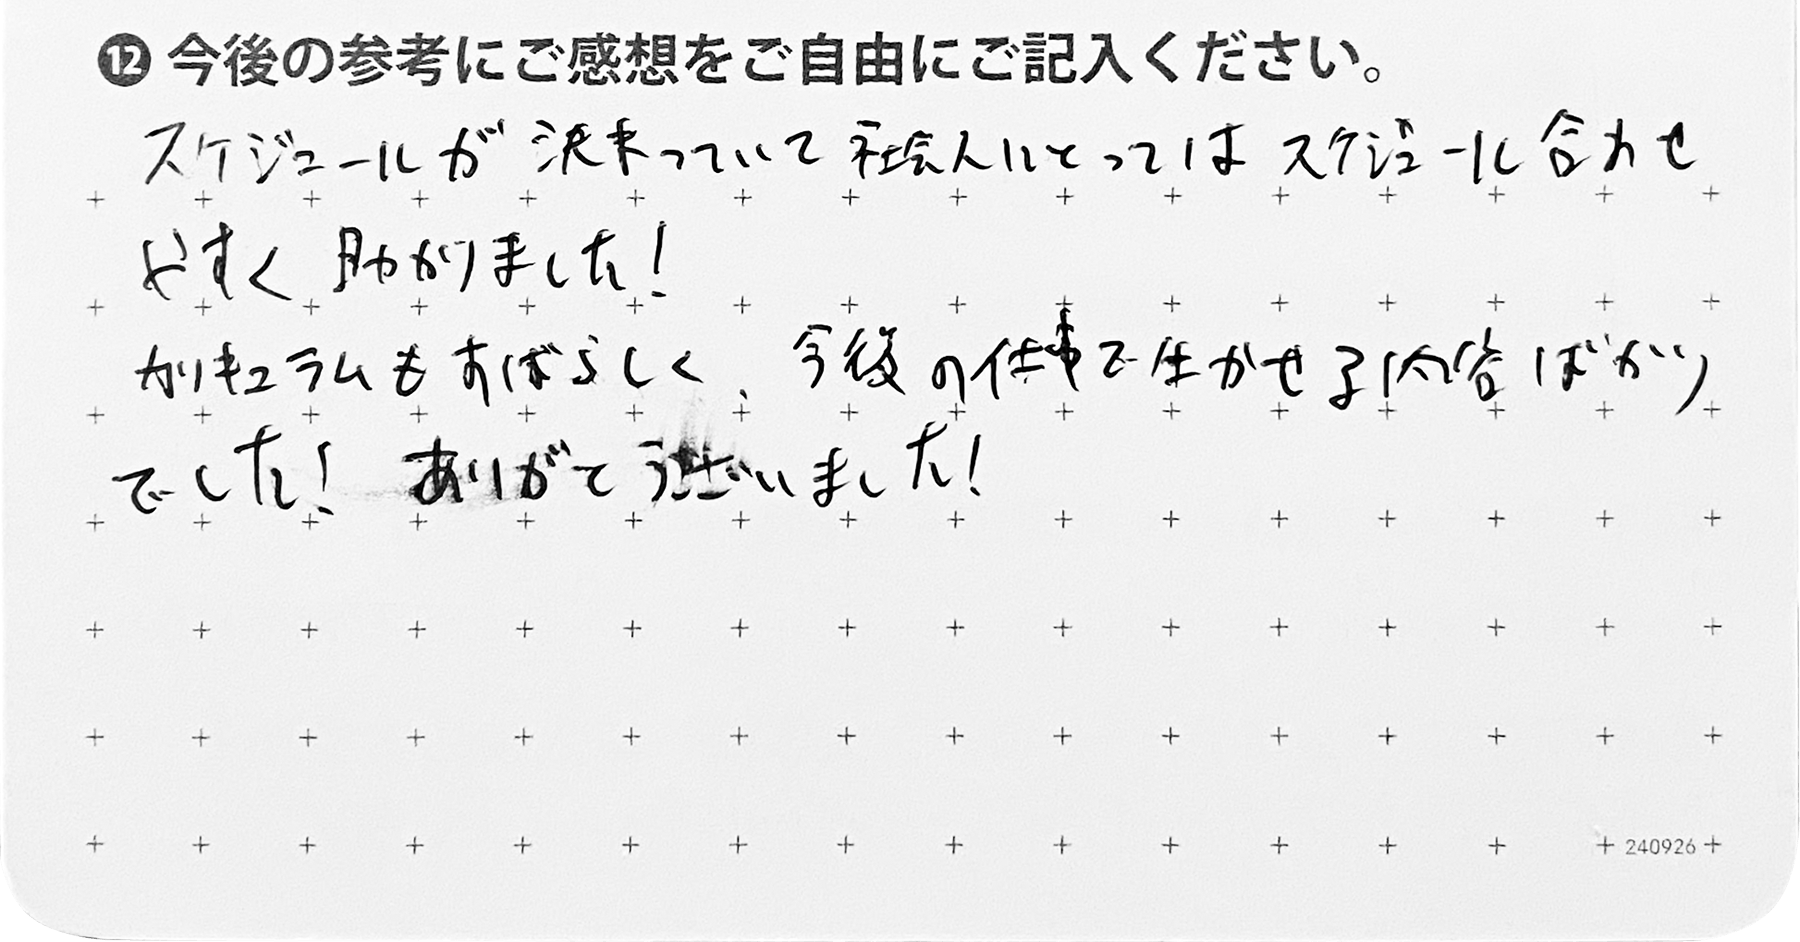 ⓬ 今後の参考にご感想をご自由にご記入ください。
スケジュールが決まっていて社会人にとってはスケジュール合わせ
やすく助かりました!
カリキュラムもすばらしく、今後の仕事で生かせる内容ばかり
でした! ありがとうございました!
240926